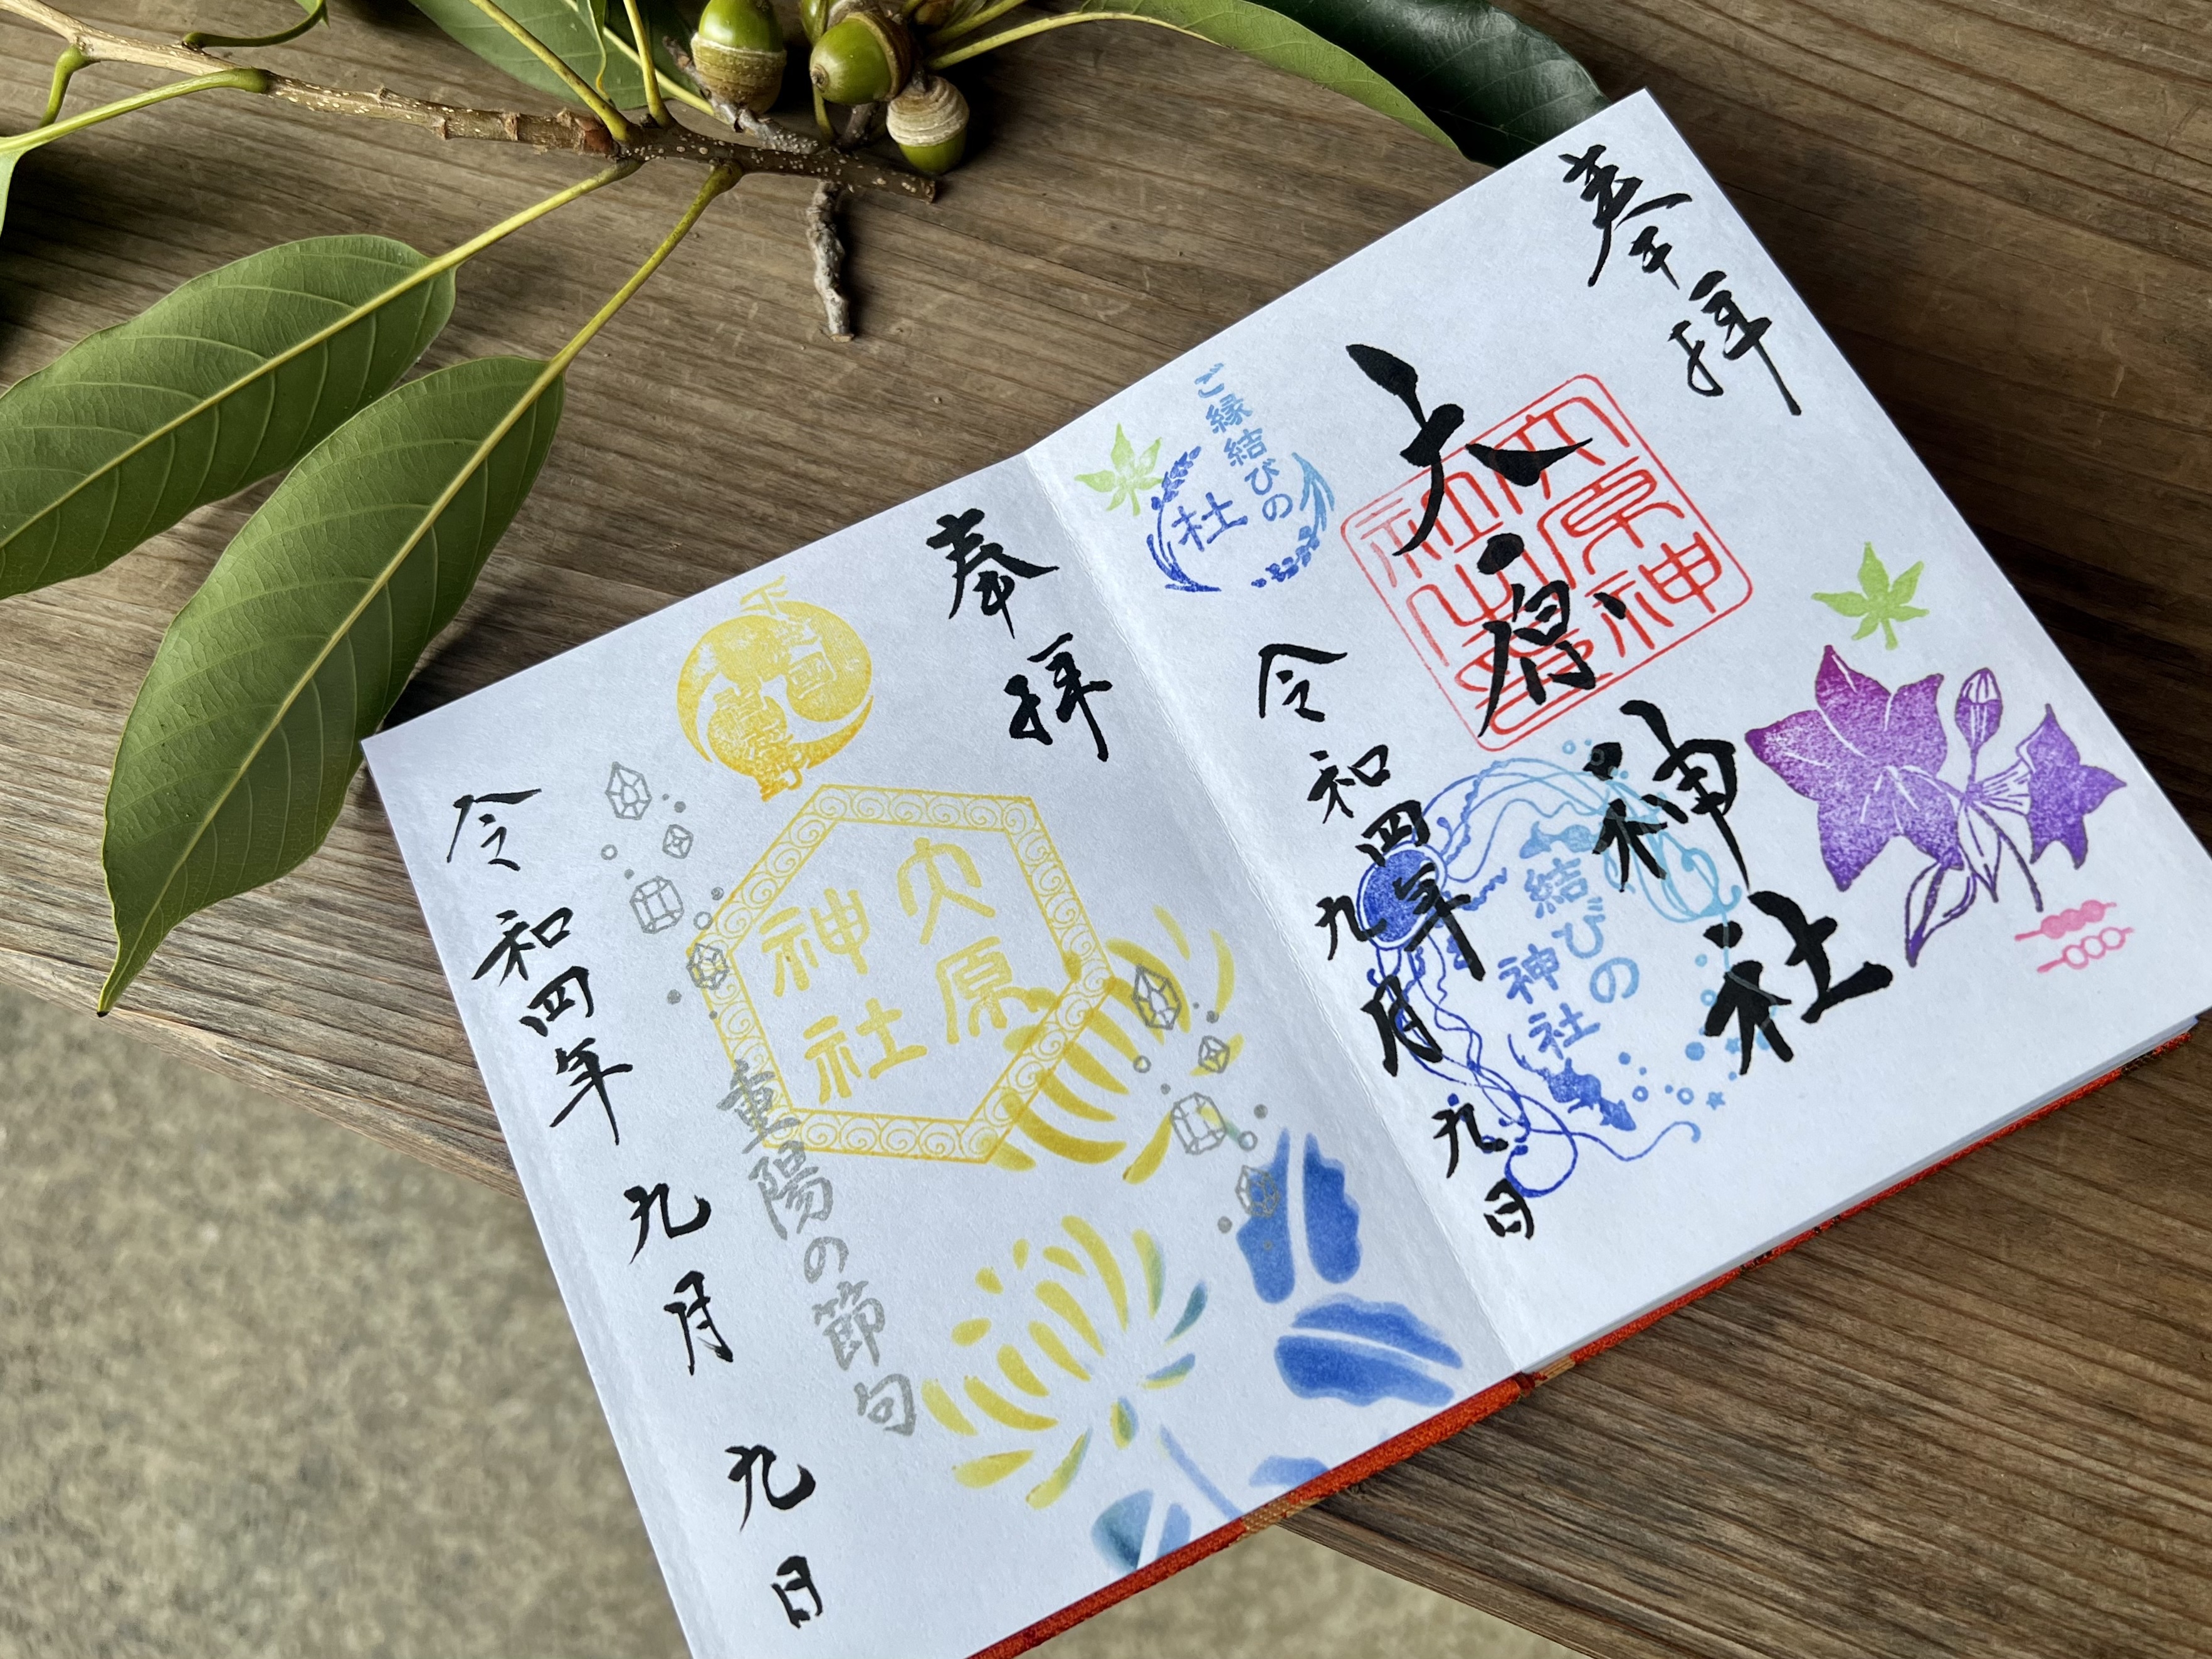 奉拝
大原神社
令和四年九月九日
ご縁結びの
杜
結びの
神社
奉拝
大原
神社
重陽の節句
令和四年九月九日